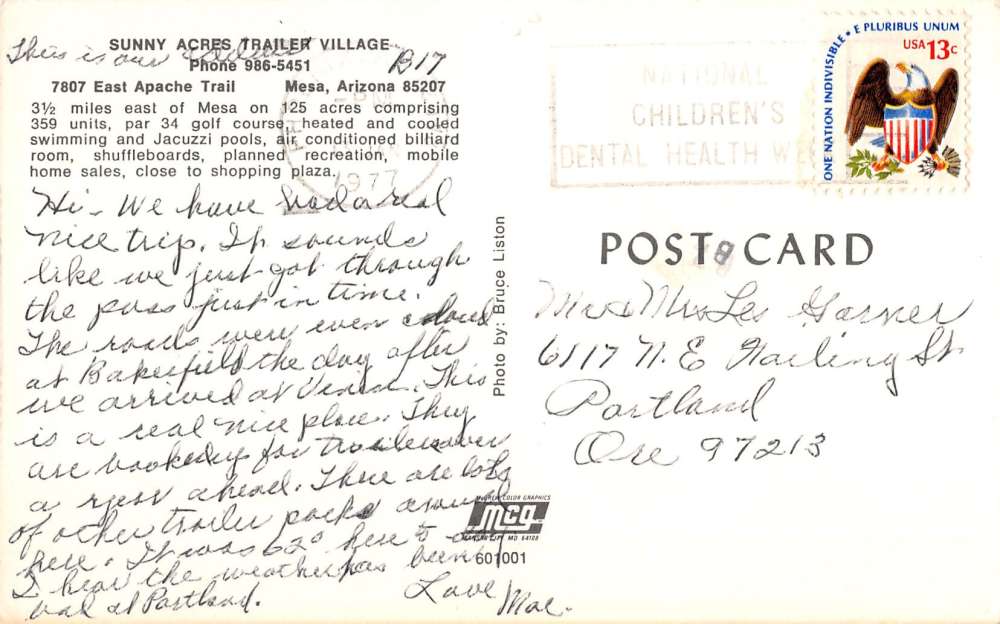 This is our address B17
SUNNY ACRES TRAILER VILLAGE
Phone 986-5451
7807 East Apache Trail Mesa, Arizona 85207
3½ miles east of Mesa on 125 acres comprising
359 units, par 34 golf course, heated and cooled
swimming and Jacuzzi pools, air conditioned billiard
room, shuffleboards, planned recreation, mobile
home sales, close to shopping plaza.
PM
1977
NATIONAL
CHILDREN'S
DENTAL HEALTH WE
ONE NATION INDIVISIBLE • E PLURIBUS UNUM
USA 13c
Hi - We have had a real
nice trip. It sounds
like we just got through
the pass just in time.
The roads were even closed
at Bakersfield the day after
we arrived at This
is a real nice place. They
are booked up for trailers over
a year ahead. There are lots
of other trailer parks around
here. It was 62° here to day
I hear the weather has been
bad at Portland.
Love Mae.
Photo by: Bruce Liston
COLOR GRAPHICS
mcg
KANSAS CITY, MO 64108
601001
POST CARD
Mr & Mrs Les Garner
6117 N. E Failing St
Portland
Ore 97213